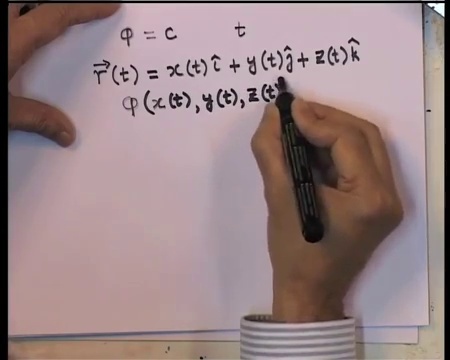 φ = c t
r⃗(t) = x(t)î + y(t)ĵ + z(t)k̂
φ(x(t), y(t), z(t)